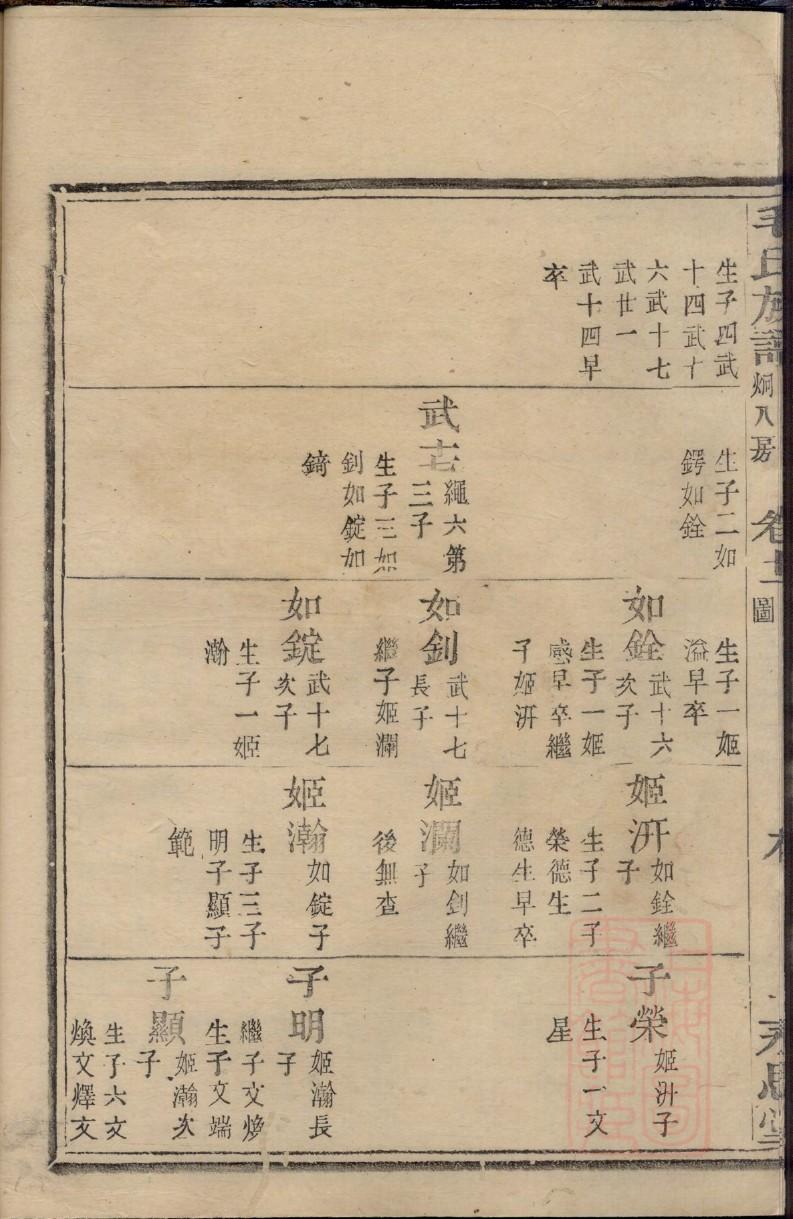 毛氏族譜
炯八房
卷十二
圖
生子四武
十四武十
六武十七
武廿一
武十四早
卒
生子二如
鍔如銓
武十七
繩六第
三子
生子三如
釗如錠如
錡
生子一姬
溢早卒
如銓
武十六
次子
生子一姬
感早卒繼
子姬汧
如釗
武十七
長子
繼子姬瀾
如錠
武十七
次子
生子一姬
瀚
姬汧
如銓繼
子
生子二子
榮德生
德生早卒
姬瀾
如釗繼
子
後無查
姬瀚
如錠子
生子三子
明子顯子
範
子榮
姬汧子
生子一文
星
子明
姬瀚長
子
繼子文煥
生子文端
子顯
姬瀚次
子
生子六文
煥文燡文
永思堂